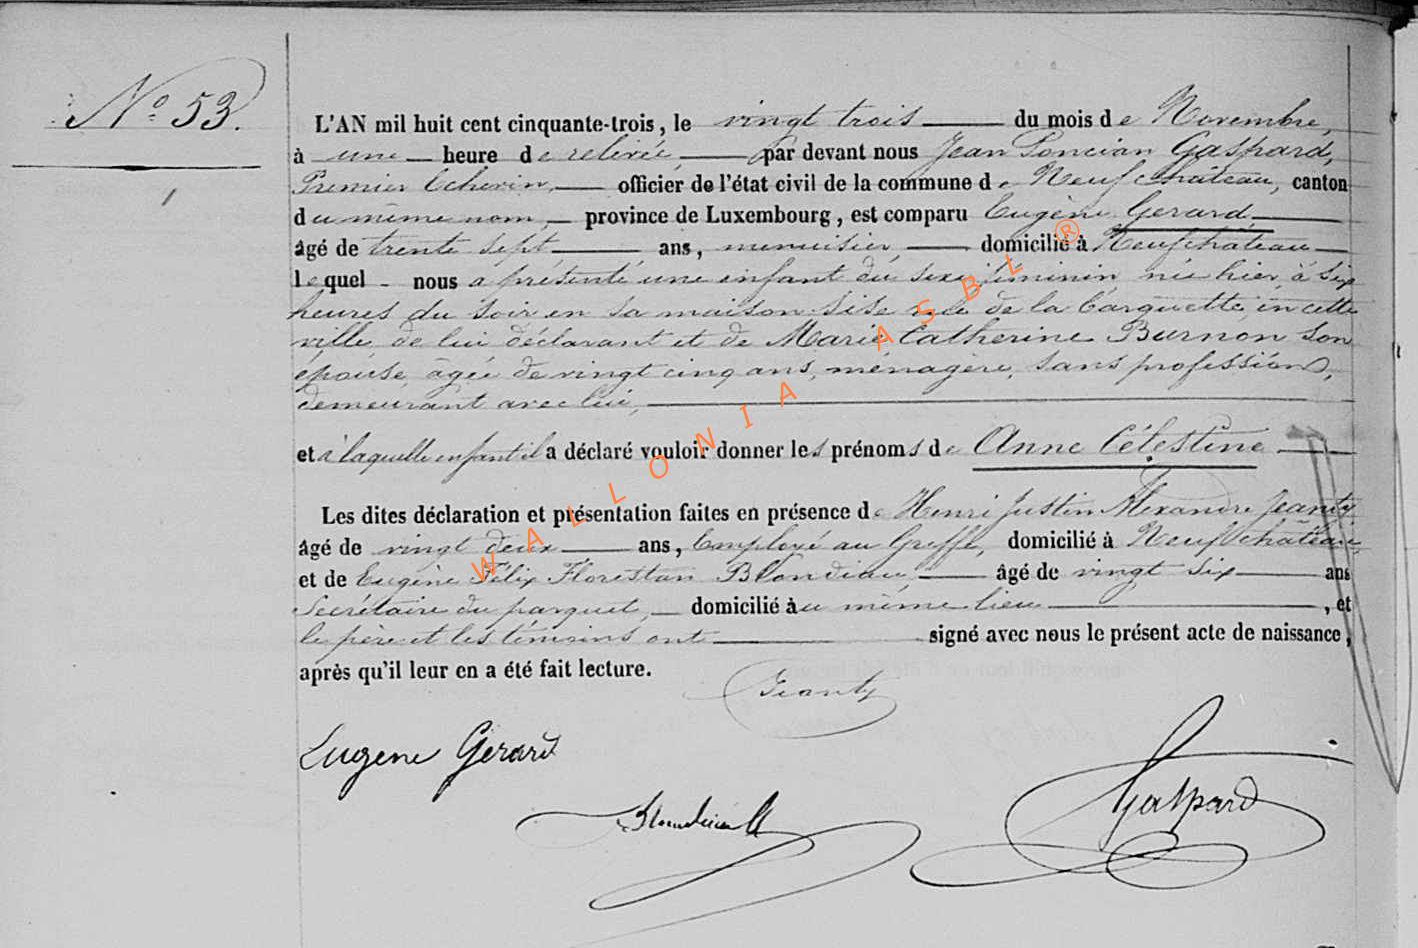 N° 53.
L'AN mil huit cent cinquante-trois, le vingt trois du mois de Novembre,
à une heure de relevée, par devant nous Jean Poncian Gaspard,
Premier Echevin, officier de l'état civil de la commune de Neufchateau, canton
du même nom, province de Luxembourg, est comparu Eugène Gerard
âgé de trente sept ans, menuisier, domicilié à Neufchâteau
lequel nous a présenté une enfant du sexe féminin née hier, à six
heures du soir en sa maison sise rue de la Barquette, en cette
ville, de lui déclarant et de Marie Catherine Burnon son
épouse, âgée de vingt cinq ans, ménagère, sans profession,
demeurant avec lui,
et à laquelle enfant il a déclaré vouloir donner les prénoms de Anne Célestine
Les dites déclaration et présentation faites en présence de Henri Justin Alexandre Jeanty
âgé de vingt deux ans, Employé au Greffe, domicilié à Neufchâteau,
et de Eugène Félix Florestan Blondiau âgé de vingt six ans
Secrétaire du parquet, domicilié au même lieu, et
le père et les témoins ont signé avec nous le présent acte de naissance,
après qu'il leur en a été fait lecture.
Jeanty
Eugene Gerard
Gaspard
WALLONIA ASBL ®